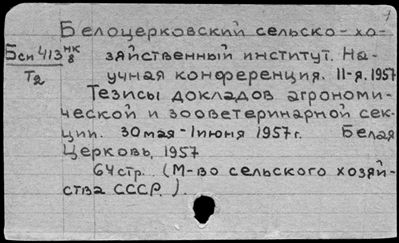 1
Белоцерковский сельско-хо-
Бсн 413 нк 8 зяйственный институт. На-
Т2 учная конференция. II-я. 1957
Тезисы докладов агрономи-
ческой и зооветеринарной сек-
ции. 30 мая - 1 июня 1957 г. Белая
Церковь, 1957
64 стр. (М-во сельского хозяй-
ства СССР.).